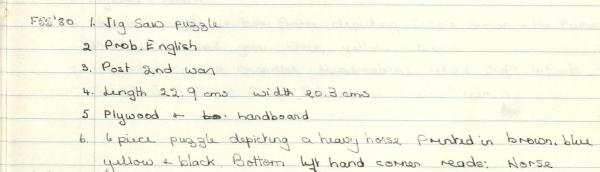 FSS'80 1. Jig Saw Puzzle
2 Prob. English
3. Post 2nd war
4. Length 22.9 cms width 20.3 cms
5 Plywood + handboard
6. 6 piece puzzle depicting a heavy horse Printed in brown, blue
yellow + black. Bottom left hand corner reads: Horse